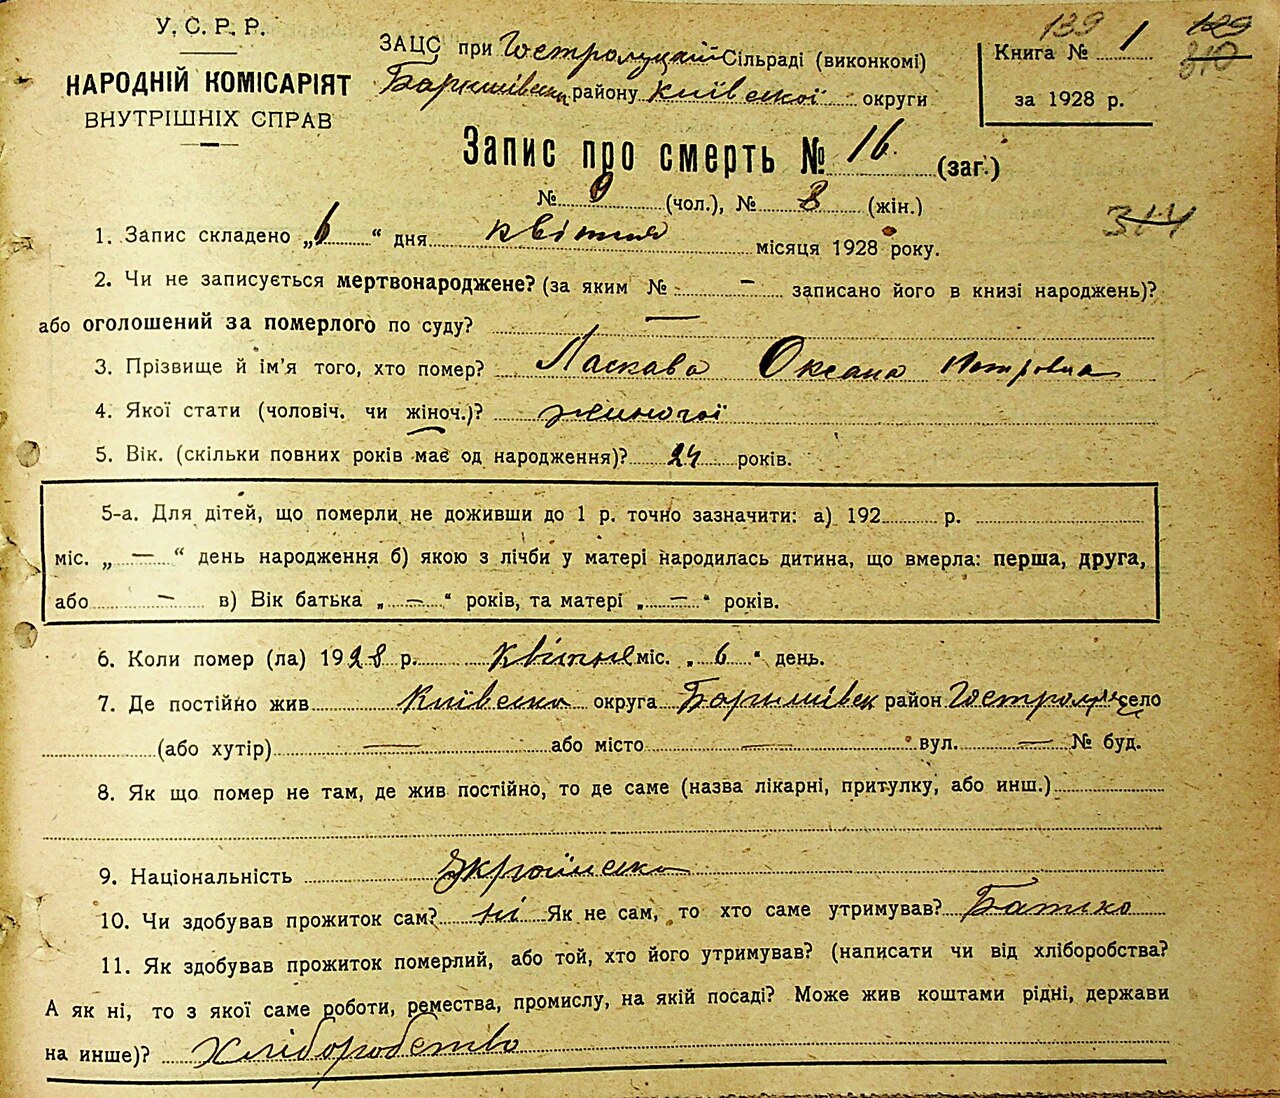 У.С.Р.Р.
НАРОДНІЙ КОМІСАРІЯТ
ВНУТРІШНІХ СПРАВ
ЗАЦС при Гостролуцкій Сільраді (виконкомі)
Баришівськ району Київської округи
139 129
310
Книга № 1
за 1928 р.
Запис про смерть № 16 (заг.)
№ 9 (чол.), № 8 (жін.)
314
1. Запис складено „6“ дня квітня місяця 1928 року.
2. Чи не записується мертвонароджене? (за яким № — записано його в книзі народжень)?
або оголошений за померлого по суду? —
3. Прізвище й ім'я того, хто помер? Ласкава Оксана Петровна
4. Якої стати (чоловіч. чи жіноч.)? жиночої
5. Вік. (скільки повних років має од народження)? 24 років.
5-а. Для дітей, що померли не доживши до 1 р. точно зазначити: а) 192 р.
міс. „ — “ день народження б) якою з лічби у матері народилась дитина, що вмерла: перша, друга,
або — в) Вік батька „ — “ років, та матері „ — “ років.
6. Коли помер (ла) 1928 р. квітня міс. „ 6 “ день.
7. Де постійно жив Київська округа Баришівськ район Гостролуцьке село
(або хутір) — або місто — вул. — № буд.
8. Як що помер не там, де жив постійно, то де саме (назва лікарні, притулку, або инш.)
9. Національність Українська
10. Чи здобував прожиток сам? ні Як не сам, то хто саме утримував? Батько
11. Як здобував прожиток померлий, або той, хто його утримував? (написати чи від хліборобства?
А як ні, то з якої саме роботи, ремества, промислу, на якій посаді? Може жив коштами рідні, держави
на инше)? Хліборобство